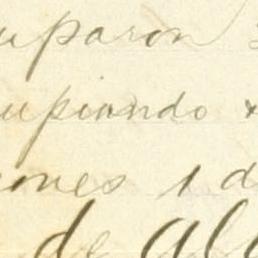 uparon
upiando
ones i d
de al